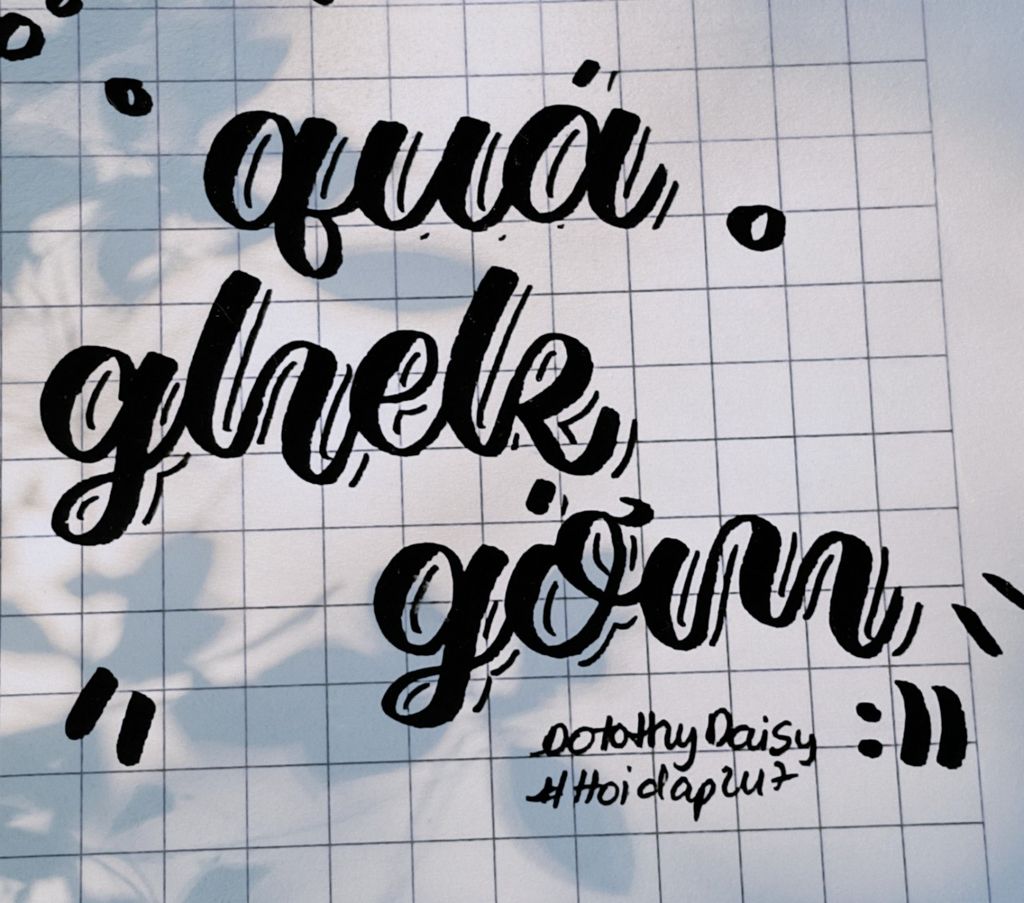 quá
ghek
gớm
:))
Dorothy Daisy
#Hoidap247